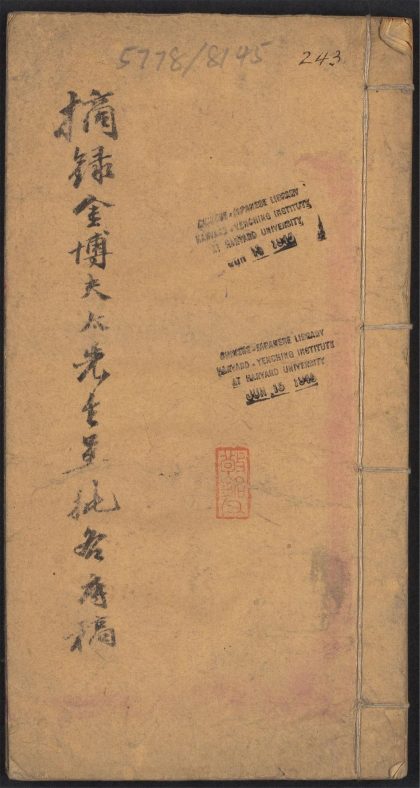 5778/8145
243
摘錄金博夫先生呈批各稿
CHINESE-JAPANESE LIBRARY
HARVARD-YENCHING INSTITUTE
AT HARVARD UNIVERSITY
JUN 15
CHINESE-JAPANESE LIBRARY
HARVARD-YENCHING INSTITUTE
AT HARVARD UNIVERSITY
JUN 15